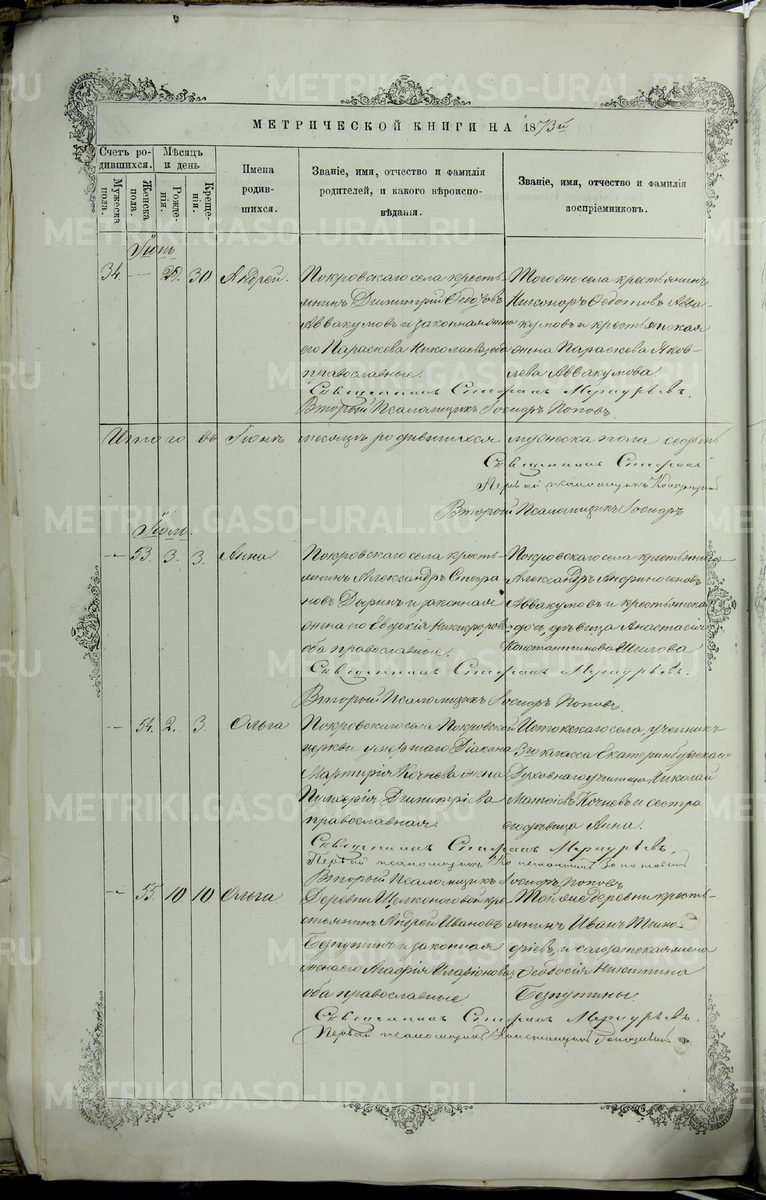 МЕТРИЧЕСКОЙ КНИГИ НА 1873й
Счетъ родившихся.
Мужеска пола.
Женска пола.
Мѣсяцъ и день
Рожденія.
Крещенія.
Имена родившихся.
Званіе, имя, отчество и фамилія родителей, и какого вѣроисповѣданія.
Званіе, имя, отчество и фамилія воспріемниковъ.
34. — 29. 30 Андрей.
Покровскаго села кресть-
янинъ Димитрій Ѳедотовъ
Аввакумовъ и законная жена
его Параскева Николаева, оба
православные.
Тогоже села крестьянинъ
Никоноръ Ѳедотовъ Авва-
кумовъ и крестьянская
жена Параскева Яков-
лева Аввакумова.
Священникъ Стефанъ Меркурьевъ.
Второй Псаломщикъ Поповъ.
Итого въ Іюнѣ мѣсяцѣ родившихся мужеска пола
Священникъ Стефанъ
Первый псаломщикъ
Второй Псаломщикъ
Іюль.
— 53. 3. 3. Анна
Покровскаго села кресть-
янинъ Александръ Стефа-
новъ и законная
жена его Евдокія Никифорова
оба православные.
Покровскаго села крестьянинъ
Александръ
Аввакумовъ и крестьянская
дочь, дѣвица Анастасія
Константинова Шилова
Священникъ Стефанъ Меркурьевъ.
Второй Псаломщикъ Поповъ.
— 54. 2. 3. Ольга
Покровскаго села Покровской
церкви умершаго Діакона
Мартирія Кочнева жена
Димитріева
православная.
Истокскаго села, ученикъ
3го класса Екатеринбургскаго
Духовнаго училища Николай
Матѳіевъ Кочневъ и сестра
его дѣвица Анна.
Священникъ Стефанъ Меркурьевъ.
Первый псаломщикъ
Второй Псаломщикъ Поповъ
— 55. 10 10 Ольга
Деревни кре-
стьянинъ Андрей Ивановъ
Безпутинъ и законная
жена его Агафія Иларіонова
оба православные.
Той же деревни кресть-
янинъ Иванъ Тимо-
ѳіевъ, и солдатская жена
Ѳеодосія Никитина
Безпутины.
Священникъ Стефанъ Меркурьевъ.
Первый псаломщикъ
METRIKI.GASO-URAL.RU